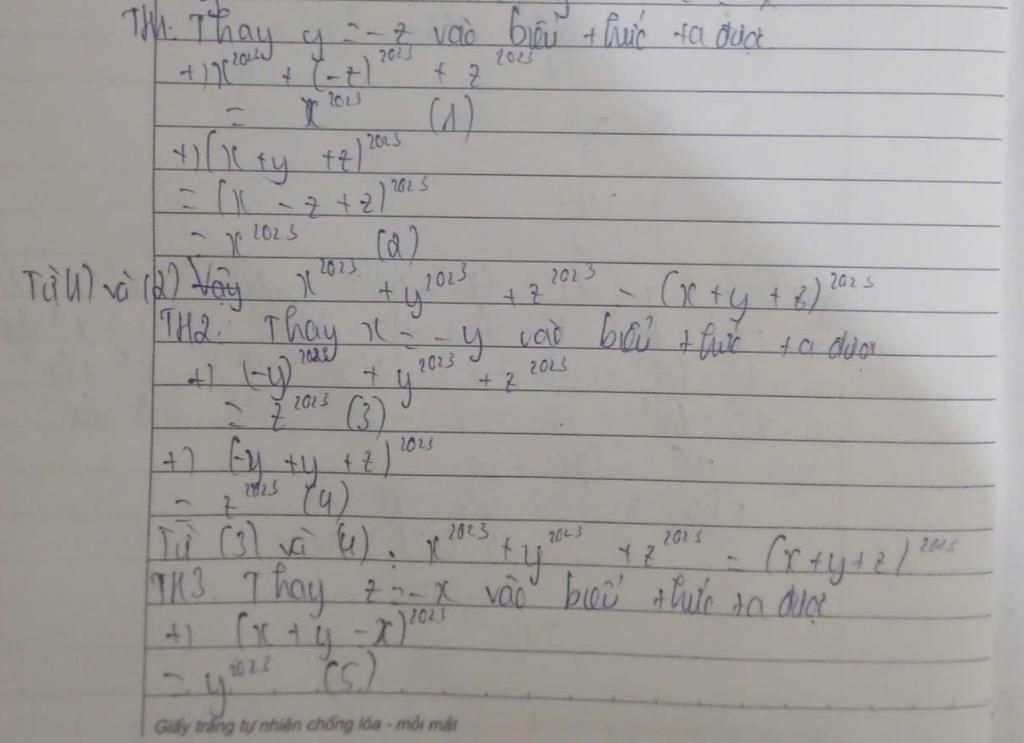 TH1. Thay y = -z vào biểu thức ta được
+) x^2023 + (-z)^2023 + z^2023
= x^2023 (1)
+) (x + y + z)^2023
= (x - z + z)^2023
= x^2023 (2)
Từ (1) và (2) Vậy x^2023 + y^2023 + z^2023 = (x + y + z)^2023
TH2. Thay x = -y vào biểu thức ta được
+) (-y)^2023 + y^2023 + z^2023
= z^2023 (3)
+) (-y + y + z)^2023
= z^2023 (4)
Từ (3) và (4). x^2023 + y^2023 + z^2023 = (x + y + z)^2023
TH3. Thay z = -x vào biểu thức ta được
+) (x + y - x)^2023
= y^2023 (5)
Giấy trắng tự nhiên chống lóa - mỏi mắt